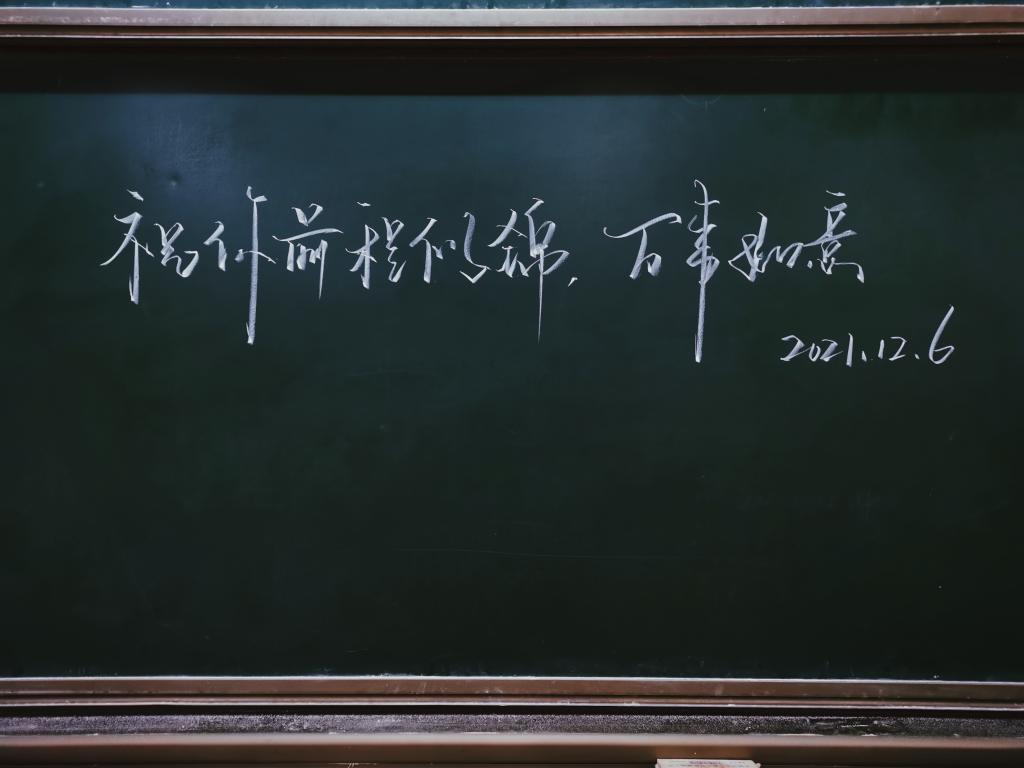 祝你前程似锦，万事如意
2021.12.6